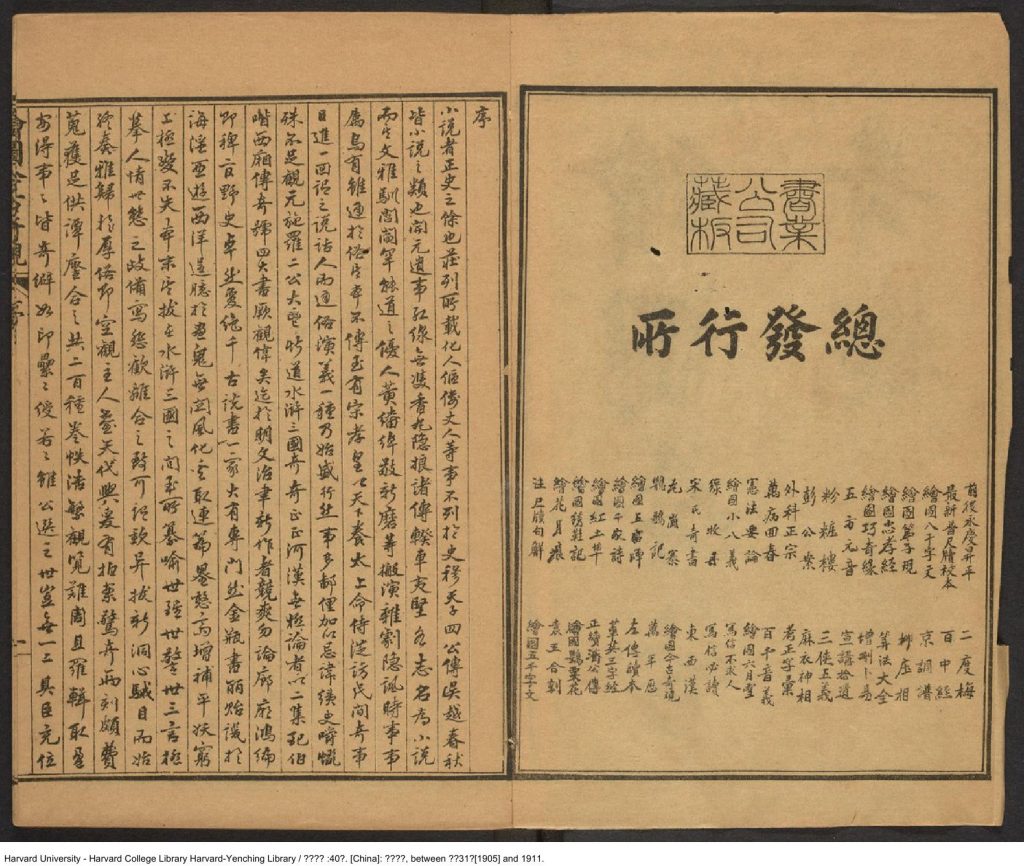 書業
公司
藏板
總發行所
前後永慶昇平
繪圖八千字文
繪圖第子規
繪圖忠孝經
繪圖巧奇緣
五方元音
粉粧樓
彭公案
外科正宗
萬病回春
憲法要論
繪圖小八義
宋氏奇書
鸚鵡記
繪圖千家詩
繪圖繡鞋記
繪花月痕
註尺牘句解
二度梅
百中經
京調譜
柳庄相
算法大全
增刪卜易
宣講拾遺
三俠五義
麻衣神相
考正字彙
百千音義
繪圖六月雪
寫信不求人
寫信必讀
東西漢
繪圖今古奇觀
萬年歷
左傳讀本
草真三字經
正續濟公傳
繪圖鸚粟花
袁王合刻
繪圖五千字文
序
小說者正史之餘也莊列所載化人佝僂丈人等事不列於史穆天子四公傳吳越春秋
皆小說之類也開元遺事紅線無雙香丸隱娘諸傳睽車夷堅各志名為小說
而其文雅馴閭閻罕能道之優人黃繙綽敬新磨等搬演雜劇隱諷時事事
屬烏有雖通於俗其本不傳至有宋孝皇以天下養太上命侍從訪民間奇事
日進一回謂之說話人而通俗演義一種乃始盛行然事多鄙俚加以忌諱讀史嚼蠟
殊不足觀元施羅二公大暢斯道水滸三國奇奇正正河漢無極論者以二集配伯
喈西廂傳奇號四大書厥觀偉矣迄於明文治聿新作者競爽勿論廊廟鴻編
即稗官野史卓然夐絕千古說書一家亦有專門然金瓶書麗貽譏於
海淫西遊西洋逞臆於畫鬼無關風化奚取連篇墨憨齋增補平妖窮
工極變不失本末其技在水滸三國之間至所纂喻世醒世警世三言極
摹人情世態之歧備寫悲歡離合之致可謂欽異拔新洞心駴目而始
終奏雅歸於厚俗即空觀主人壺矢代興爰有拍案驚奇兩刻頗費
蒐獲足供譚麈合之共二百種卷帙浩繁觀覽難周且羅輯取盈
安得事之皆奇僻如印纍之綬若之雖公選之世豈無一二具臣充位
繪圖今古奇觀
Harvard University - Harvard College Library Harvard-Yenching Library / ???? :40?. [China]: ????, between ??31?[1905] and 1911.